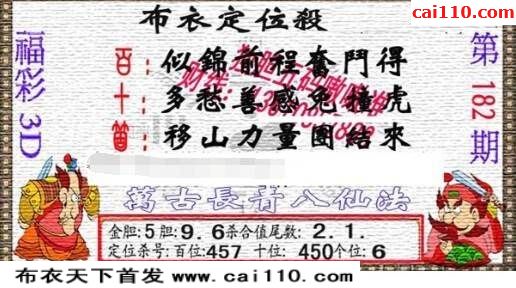 cai110.com
布衣定位殺
福彩3D
第182期
百：似錦前程奮鬥得
十：多愁善感免撞虎
個：移山力量團結來
萬古長青八仙法
金胆:5胆:9.6杀合值尾数:2.1.
定位杀号:百位:457 十位:450个位:6
布衣天下首发 www.cai110.com